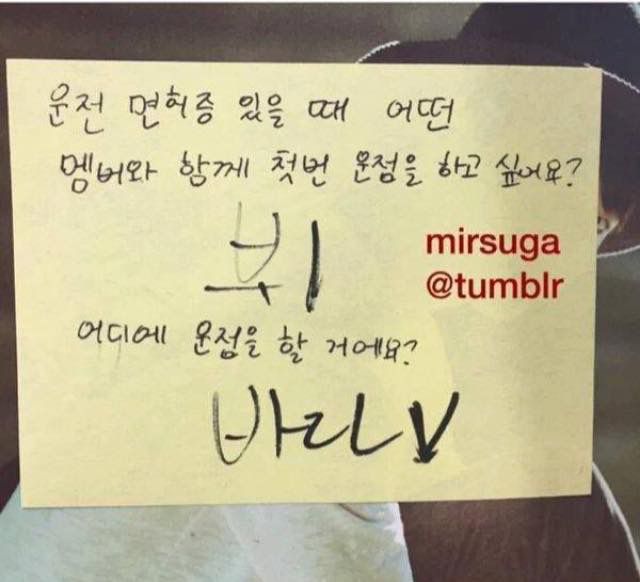 운전 면허증 있을 때 어떤
멤버와 함께 첫번 운점을 하고 싶어요?
뷔
mirsuga
@tumblr
어디에 운점을 할 거에요?
바다